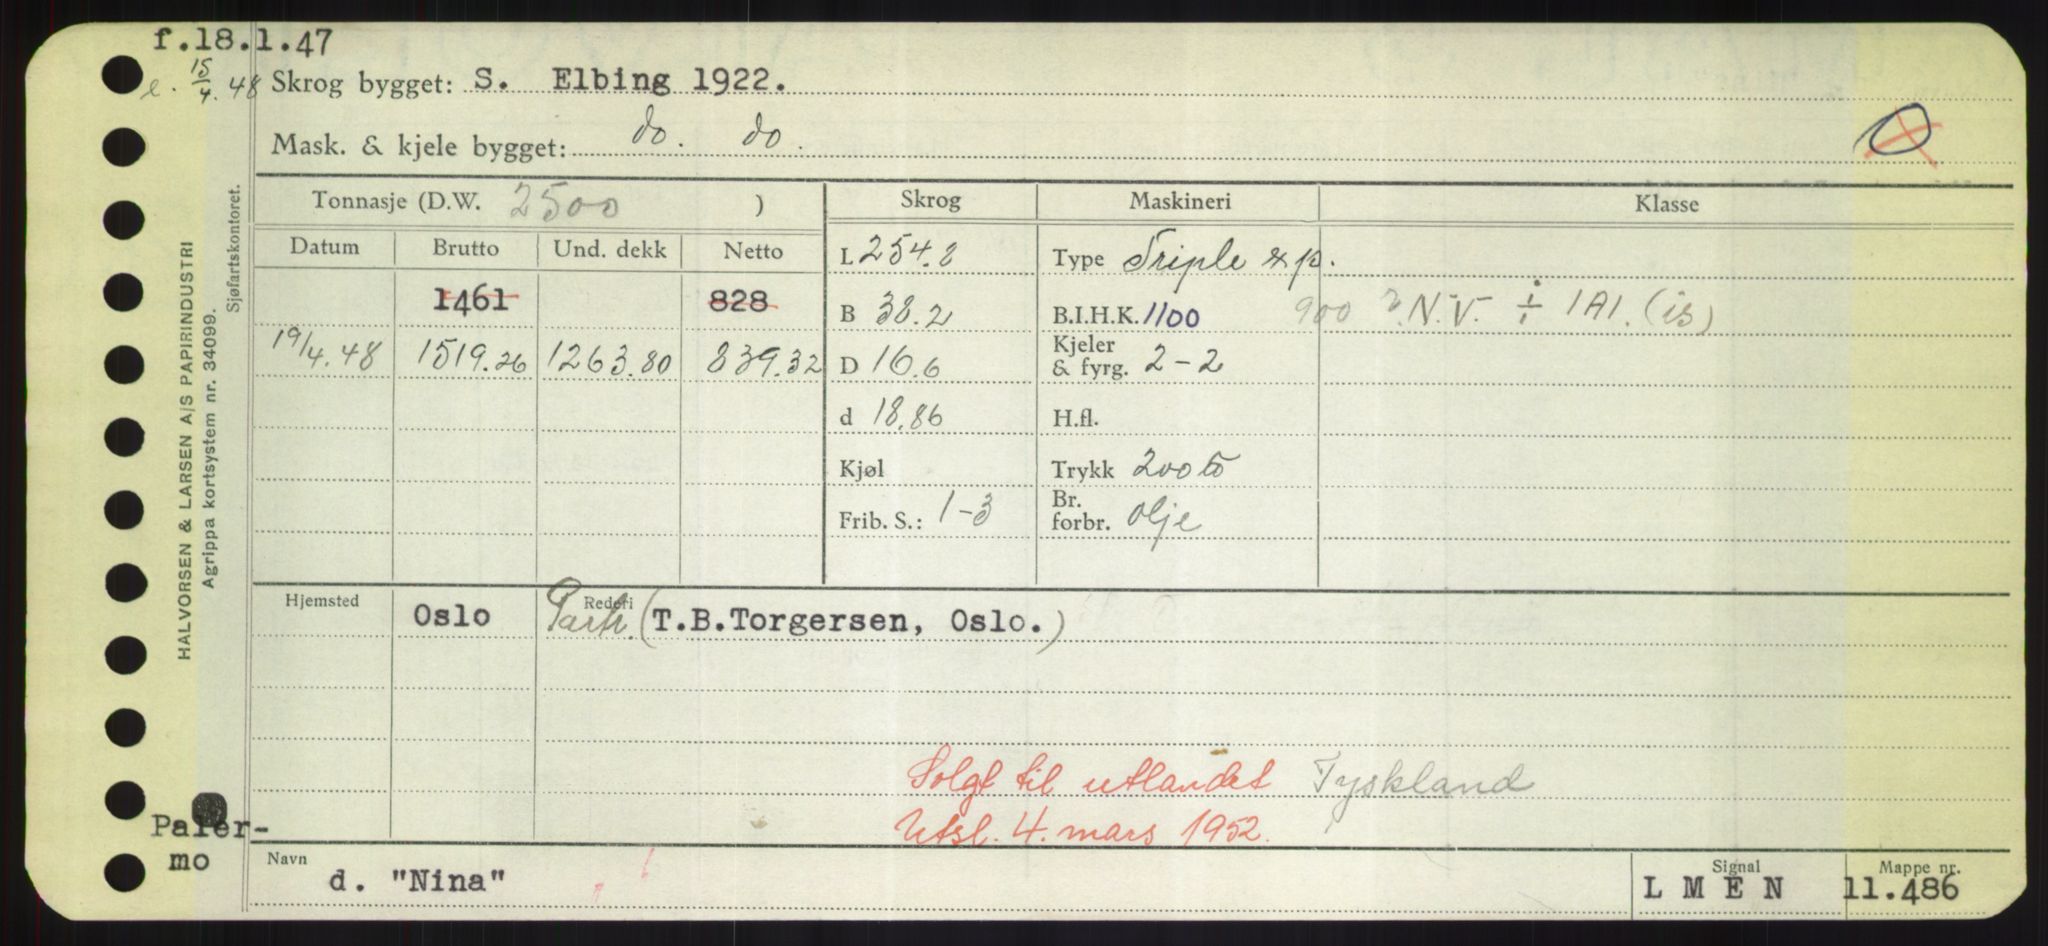 f.18.1.47
e. 15/4.48
Skrog bygget: S. Elbing 1922.
Mask. & kjele bygget: do. do.
Tonnasje (D.W. 2500 )
Skrog
Maskineri
Klasse
Datum Brutto Und. dekk Netto
L 254.8
Type Triple exp.
1461 828
B 38.2
B.I.H.K. 1100 900 ? N.V. ÷ 1A1. (is)
19/4.48 1519.26 1263.80 839.32
D 16.6
Kjeler & fyrg. 2-2
d 18.86
H.fl.
Kjøl
Trykk 200 lb
Frib. S.: 1-3
Br. forbr. olje
Hjemsted
Rederi
Oslo
Partr. (T.B.Torgersen, Oslo.)
Solgt til utlandet Tyskland
Utsl. 4. mars 1952.
Paler-
mo
Navn
d. "Nina"
Signal
L M E N
Mappe nr.
11.486
HALVORSEN & LARSEN A/S PAPIRINDUSTRI
Agrippa kortsystem nr. 34099.
Sjøfartskontoret.